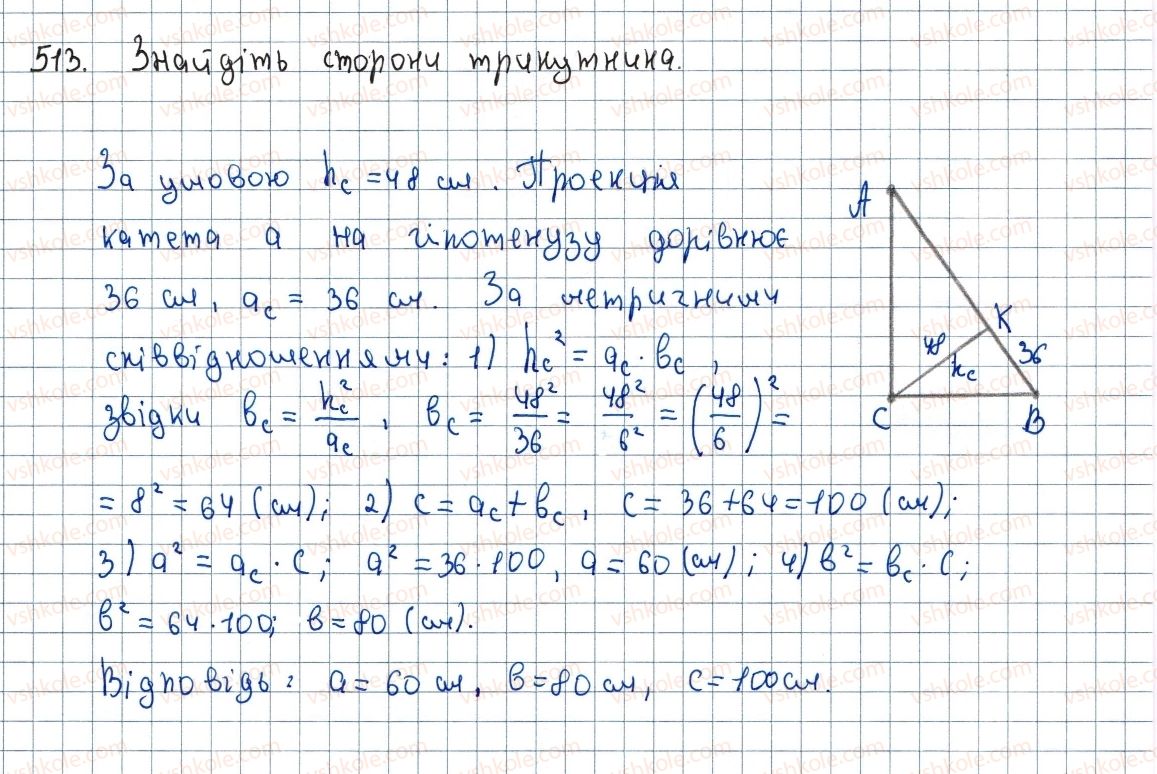 513. Знайдіть сторони трикутника.
За умовою h_c = 48 см. Проекція
катета a на гіпотенузу дорівнює
36 см, a_c = 36 см. За метричними
співвідношеннями: 1) h_c² = a_c · b_c,
звідки b_c = h_c²/a_c, b_c = 48²/36 = 48²/6² = (48/6)² =
= 8² = 64 (см); 2) c = a_c + b_c, c = 36 + 64 = 100 (см);
3) a² = a_c · c; a² = 36 · 100, a = 60 (см); 4) b² = b_c · c;
b² = 64 · 100; b = 80 (см).
Відповідь: a = 60 см, b = 80 см, c = 100 см.
A
K
48
36
h_c
C
B
vshkole.com